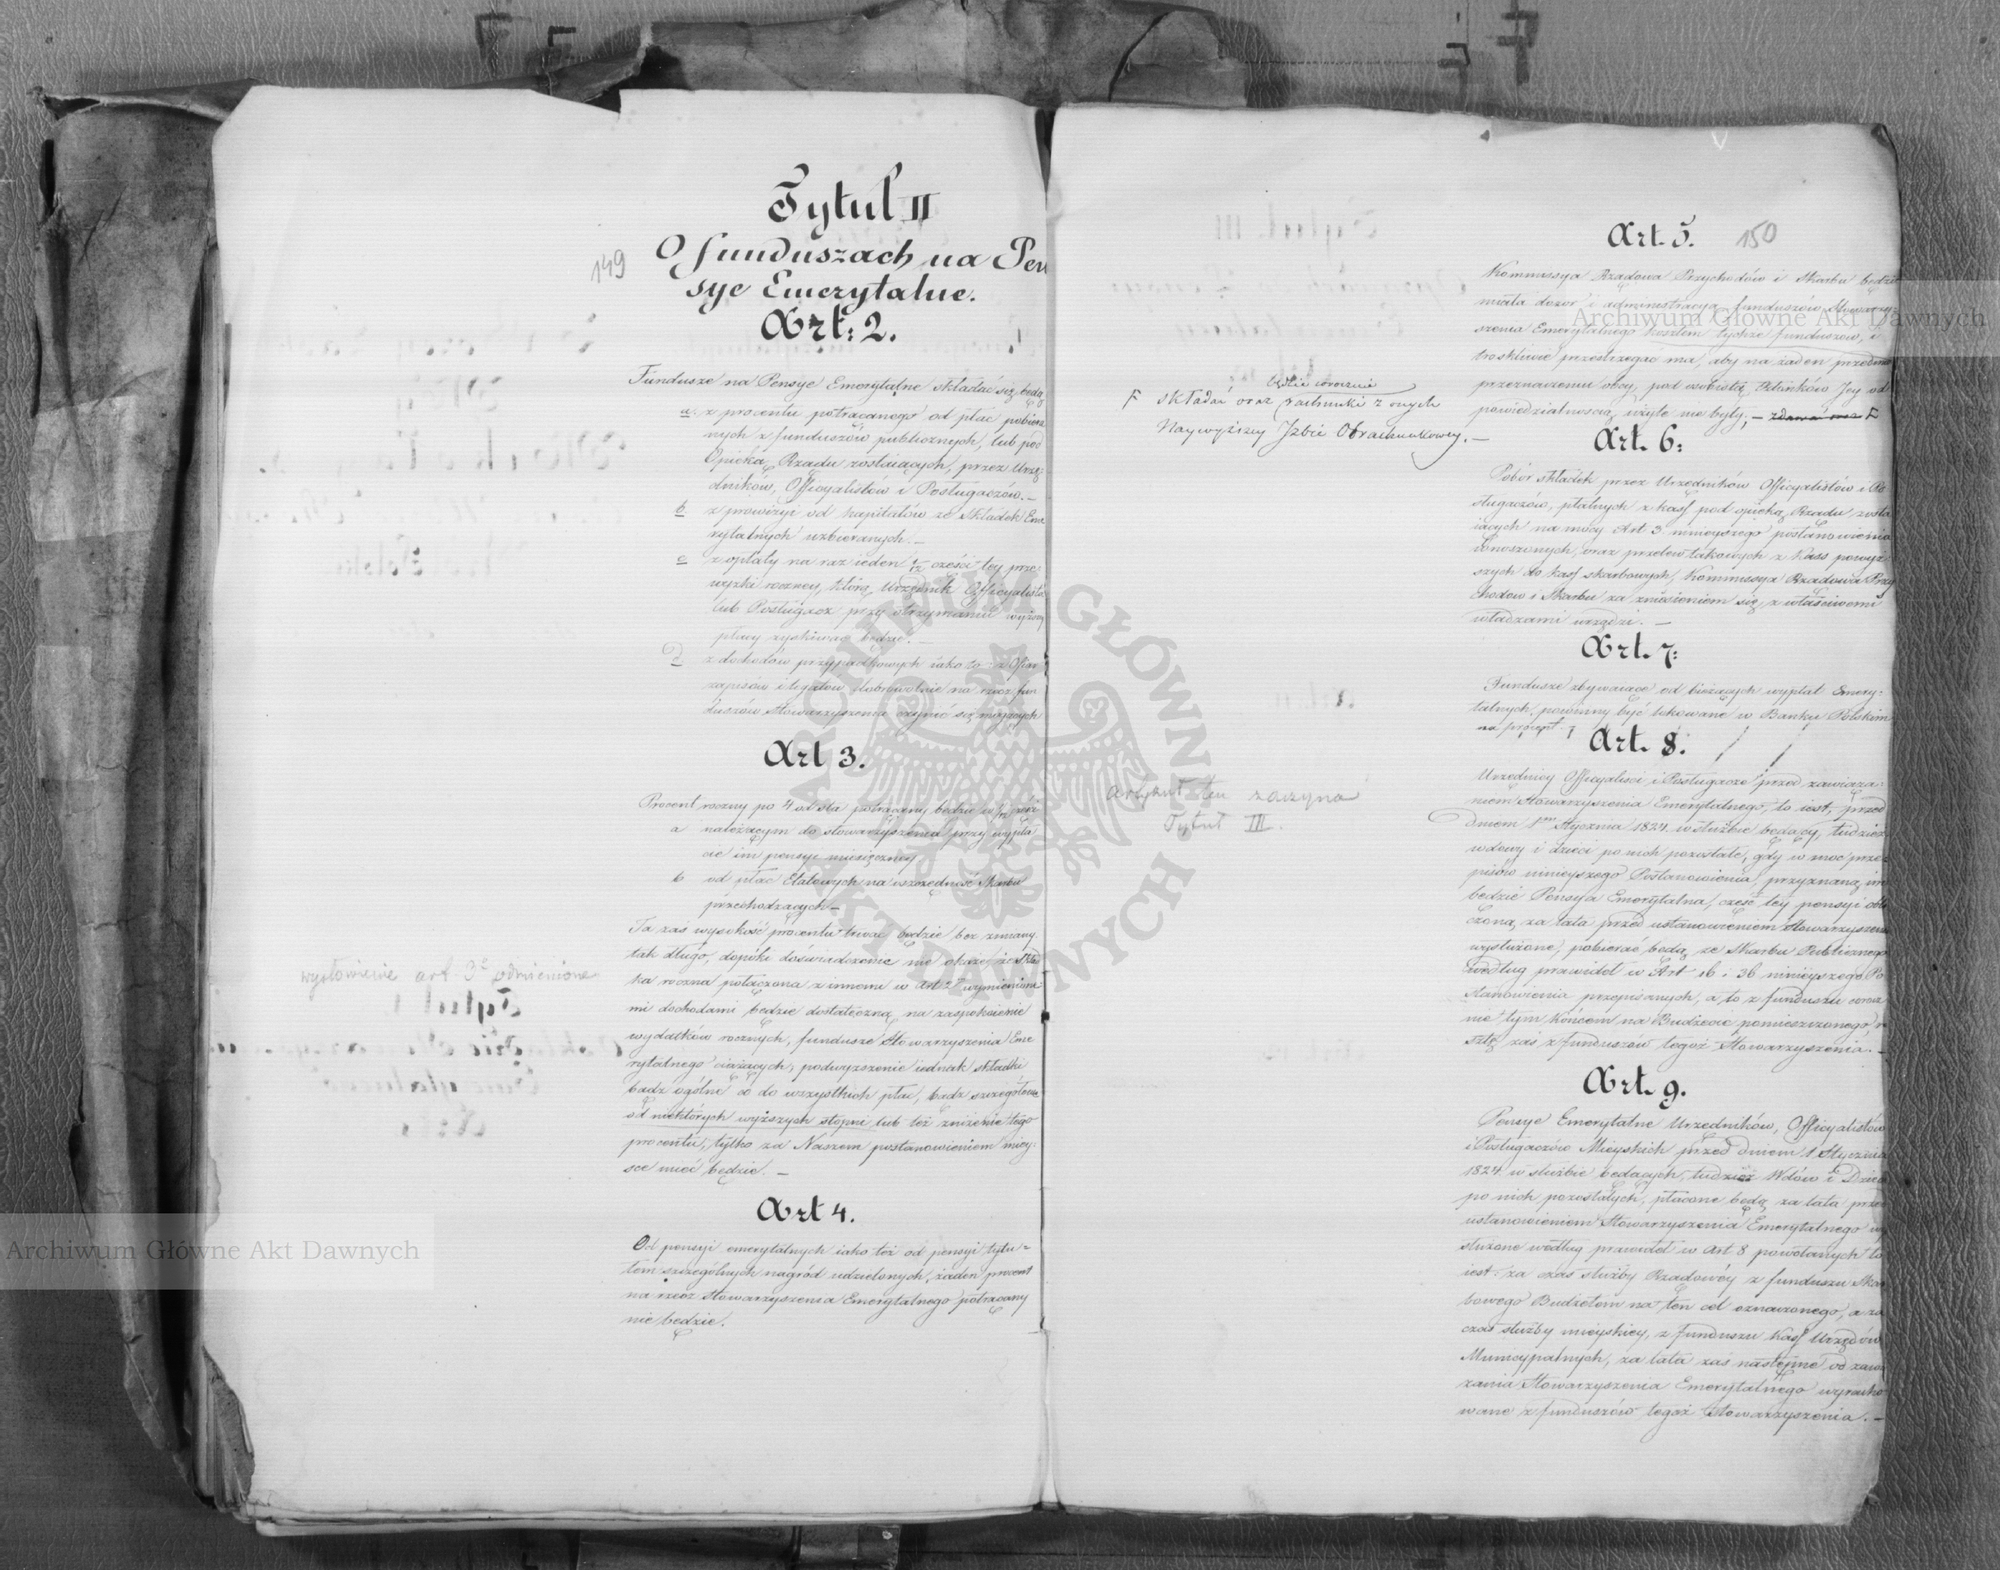 149
Tytuł II
O funduszach na Pen
sye Emerytalne.
Art: 2.
Fundusze na Pensye Emerytalne składać się będą
a. z procentu potrącanego od płac pobiera
nych z funduszów publicznych, lub pod
Opieką Rządu zostaiących, przez Urzę-
dników, Officyalistów i Posługaczów. —
b z prowizyi od kapitałów ze składek Eme
rytalnych uzbieranych. —
c z opłaty na raz ieden 1/12 części tey prze-
wyżki roczney, którą Urzędnik Officyalista
lub Posługacz przy otrzymaniu wyższey
płacy zyskiwać będzie. —
d z dochodów przypadkowych iako to: z Ofiar
zapisów i legatów dobrowolnie na rzecz fun
duszów Stowarzyszenia czynić się maiących
Art 3.
Procent roczny po 4 od sta potrącany będzie w 1/12 części
a należącym do stowarzyszenia przy wypła
cie im pensyi miesięczney
b od płac Etatowych na oszczędność Skarbu
przechodzących —
Ta zaś wysokość procentu trwać będzie bez zmiany
tak długo, dopóki doświadczenie nie okaże, iż skład
ka roczna połączona z innemi w art 2 wymienione
mi dochodami będzie dostateczną na zaspokoienie
wydatków rocznych, fundusze Stowarzyszenia Eme
rytalnego ciążących, podwyższenie iednak składki
bądź ogólne co do wszystkich płac, bądź szczegółowe
od niektórych wyższych stopni, lub też zniżenie tego
procentu, tylko za Naszem postanowieniem miey-
sce mieć będzie. —
Art 4.
Od pensyi emerytalnych iako też od pensyi tytu-
łem szczególnych nagród udzielonych, żaden procent
na rzecz stowarzyszenia Emerytalnego potrącany
nie będzie.
wysłowienie art 3o odmienione
150
Art. 5.
Kommissya Rządowa Przychodów i Skarbu będzie
miała dozór i administracyą funduszów Stowarzy-
szenia Emerytalnego kosztem tychże funduszów, i
troskliwie przestrzegać ma, aby na żaden przedmiot
przeznaczeniu obcy, pod osobistą Członków Jey od
powiedzialnością użyte nie były; — zdawać oraz F
będzie corocznie
F składać oraz rachunki z onych
Naywyższey Izbie Obrachunkowey. —
Art. 6:
Pobór składek przez Urzędników Officyalistów i Po
sługaczów, płatnych z kass pod opieką Rządu zosta
iących na mocy Art 3 ninieyszego postanowienia
wnoszonych, oraz przelew takowych z Kass powyż
szych do kass skarbowych, Kommissya Rządowa Przy
chodów i Skarbu za zniesieniem się z właściwemi
władzami urządzi. —
Art. 7:
Fundusze zbywaiące od bieżących wypłat Emery-
talnych, powinny być lokowane w Banku Polskim
na procent
Art. 8.
Artykuł ten zaczyna
Tytuł III.
Urzędnicy Officyaliści i Posługacze przed zawiąza-
niem Stowarzyszenia Emerytalnego, to iest, przed
dniem 1m Stycznia 1824 w służbie będący, tudzież
wdowy i dzieci po nich pozostałe, gdy w moc prze-
pisów ninieyszego Postanowienia, przyznaną im
będzie Pensya Emerytalna, część tey pensyi obli
czoną za lata przed ustanowieniem Stowarzyszenia
wysłużone, pobierać będą ze Skarbu Publicznego
według prawideł w Art 16 i 36 ninieyszego Po
stanowienia przepisanych, a to z funduszu corocz
nie tym końcem na Budżecie pomieszczonego, re
sztę zaś z funduszów tegoż Stowarzyszenia. —
Art. 9.
Pensye Emerytalne Urzędników, Officyalistów
i Posługaczów Mieyskich przed dniem 1 Stycznia
1824 w służbie będących, tudzież Wdów i Dzieci
po nich pozostałych, płacone będą za lata przed
ustanowieniem Stowarzyszenia Emerytalnego wy
służone według prawideł w Art 8 powołanych to
iest: za czas służby Rządowéy z funduszu Skar
bowego Budżetem na ten cel oznaczonego, a za
czas służby mieyskiey, z funduszu Kass Urzędów
Municypalnych, za lata zaś następne od zawią
zania Stowarzyszenia Emerytalnego wyracho
wane z funduszów tegoż Stowarzyszenia. —
Archiwum Główne Akt Dawnych
Archiwum Główne Akt Dawnych
ARCHIWUM GŁÓWNE AKT DAWNYCH